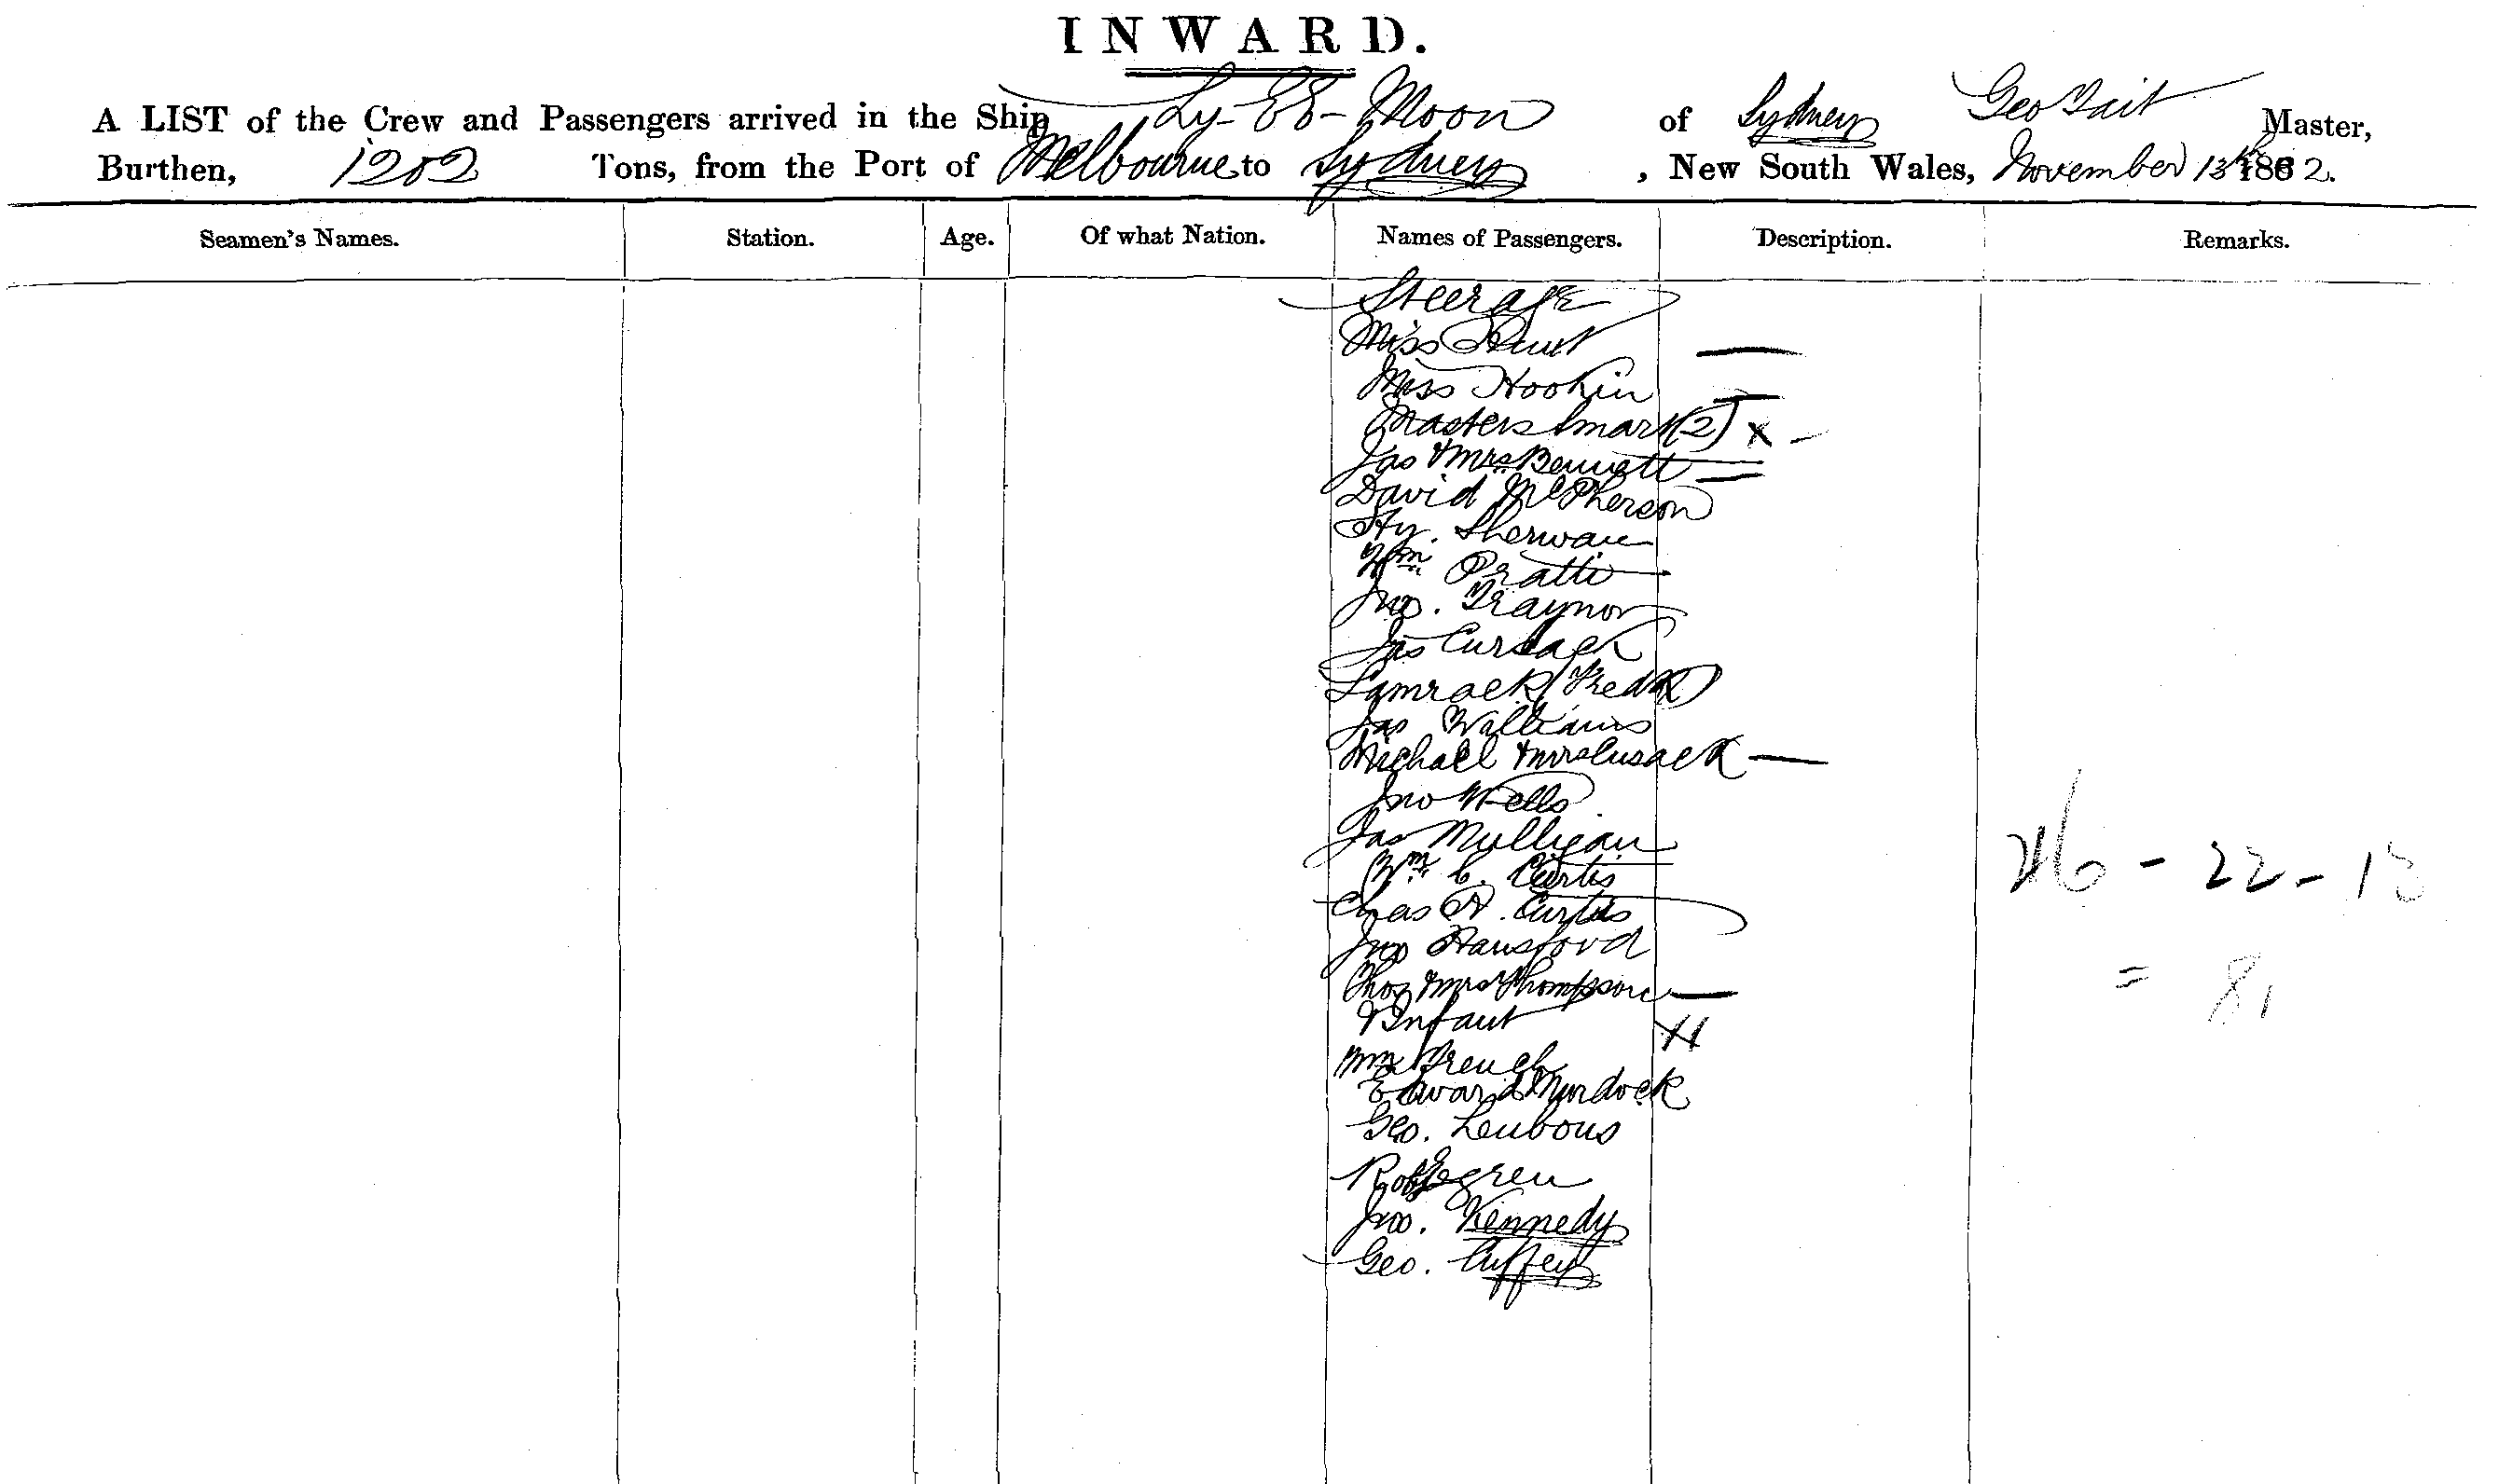 INWARD.
A LIST of the Crew and Passengers arrived in the Ship Ly-EE-Moon of Sydney Geo Tait Master,
Burthen, 1202 Tons, from the Port of Melbourne to Sydney, New South Wales, November 13th 1882.
Seamen's Names. Station. Age. Of what Nation. Names of Passengers. Description. Remarks.
Steerage
Miss
Miss Hookin
Masters Smart (2) X -
Jas & Mrs Bennett
David McPherson
Hy. Sherwan
Wm Pratti
Jno. Traynor
Jas Cursack
Lamrock (Fredk)
Jas Williams
Michael & Mrs Cusack —
Jno Wells
Jas Mulligan
Wm C. Curtis
Chas A. Curtis
Jno Hansford
Thos & Mrs Thompson —
& Infant
Wm French
Edward Murdock
Geo. Leubous
Robt Legren
Jno. Kennedy
Geo. Cuffey
46 - 22 - 13
= 81